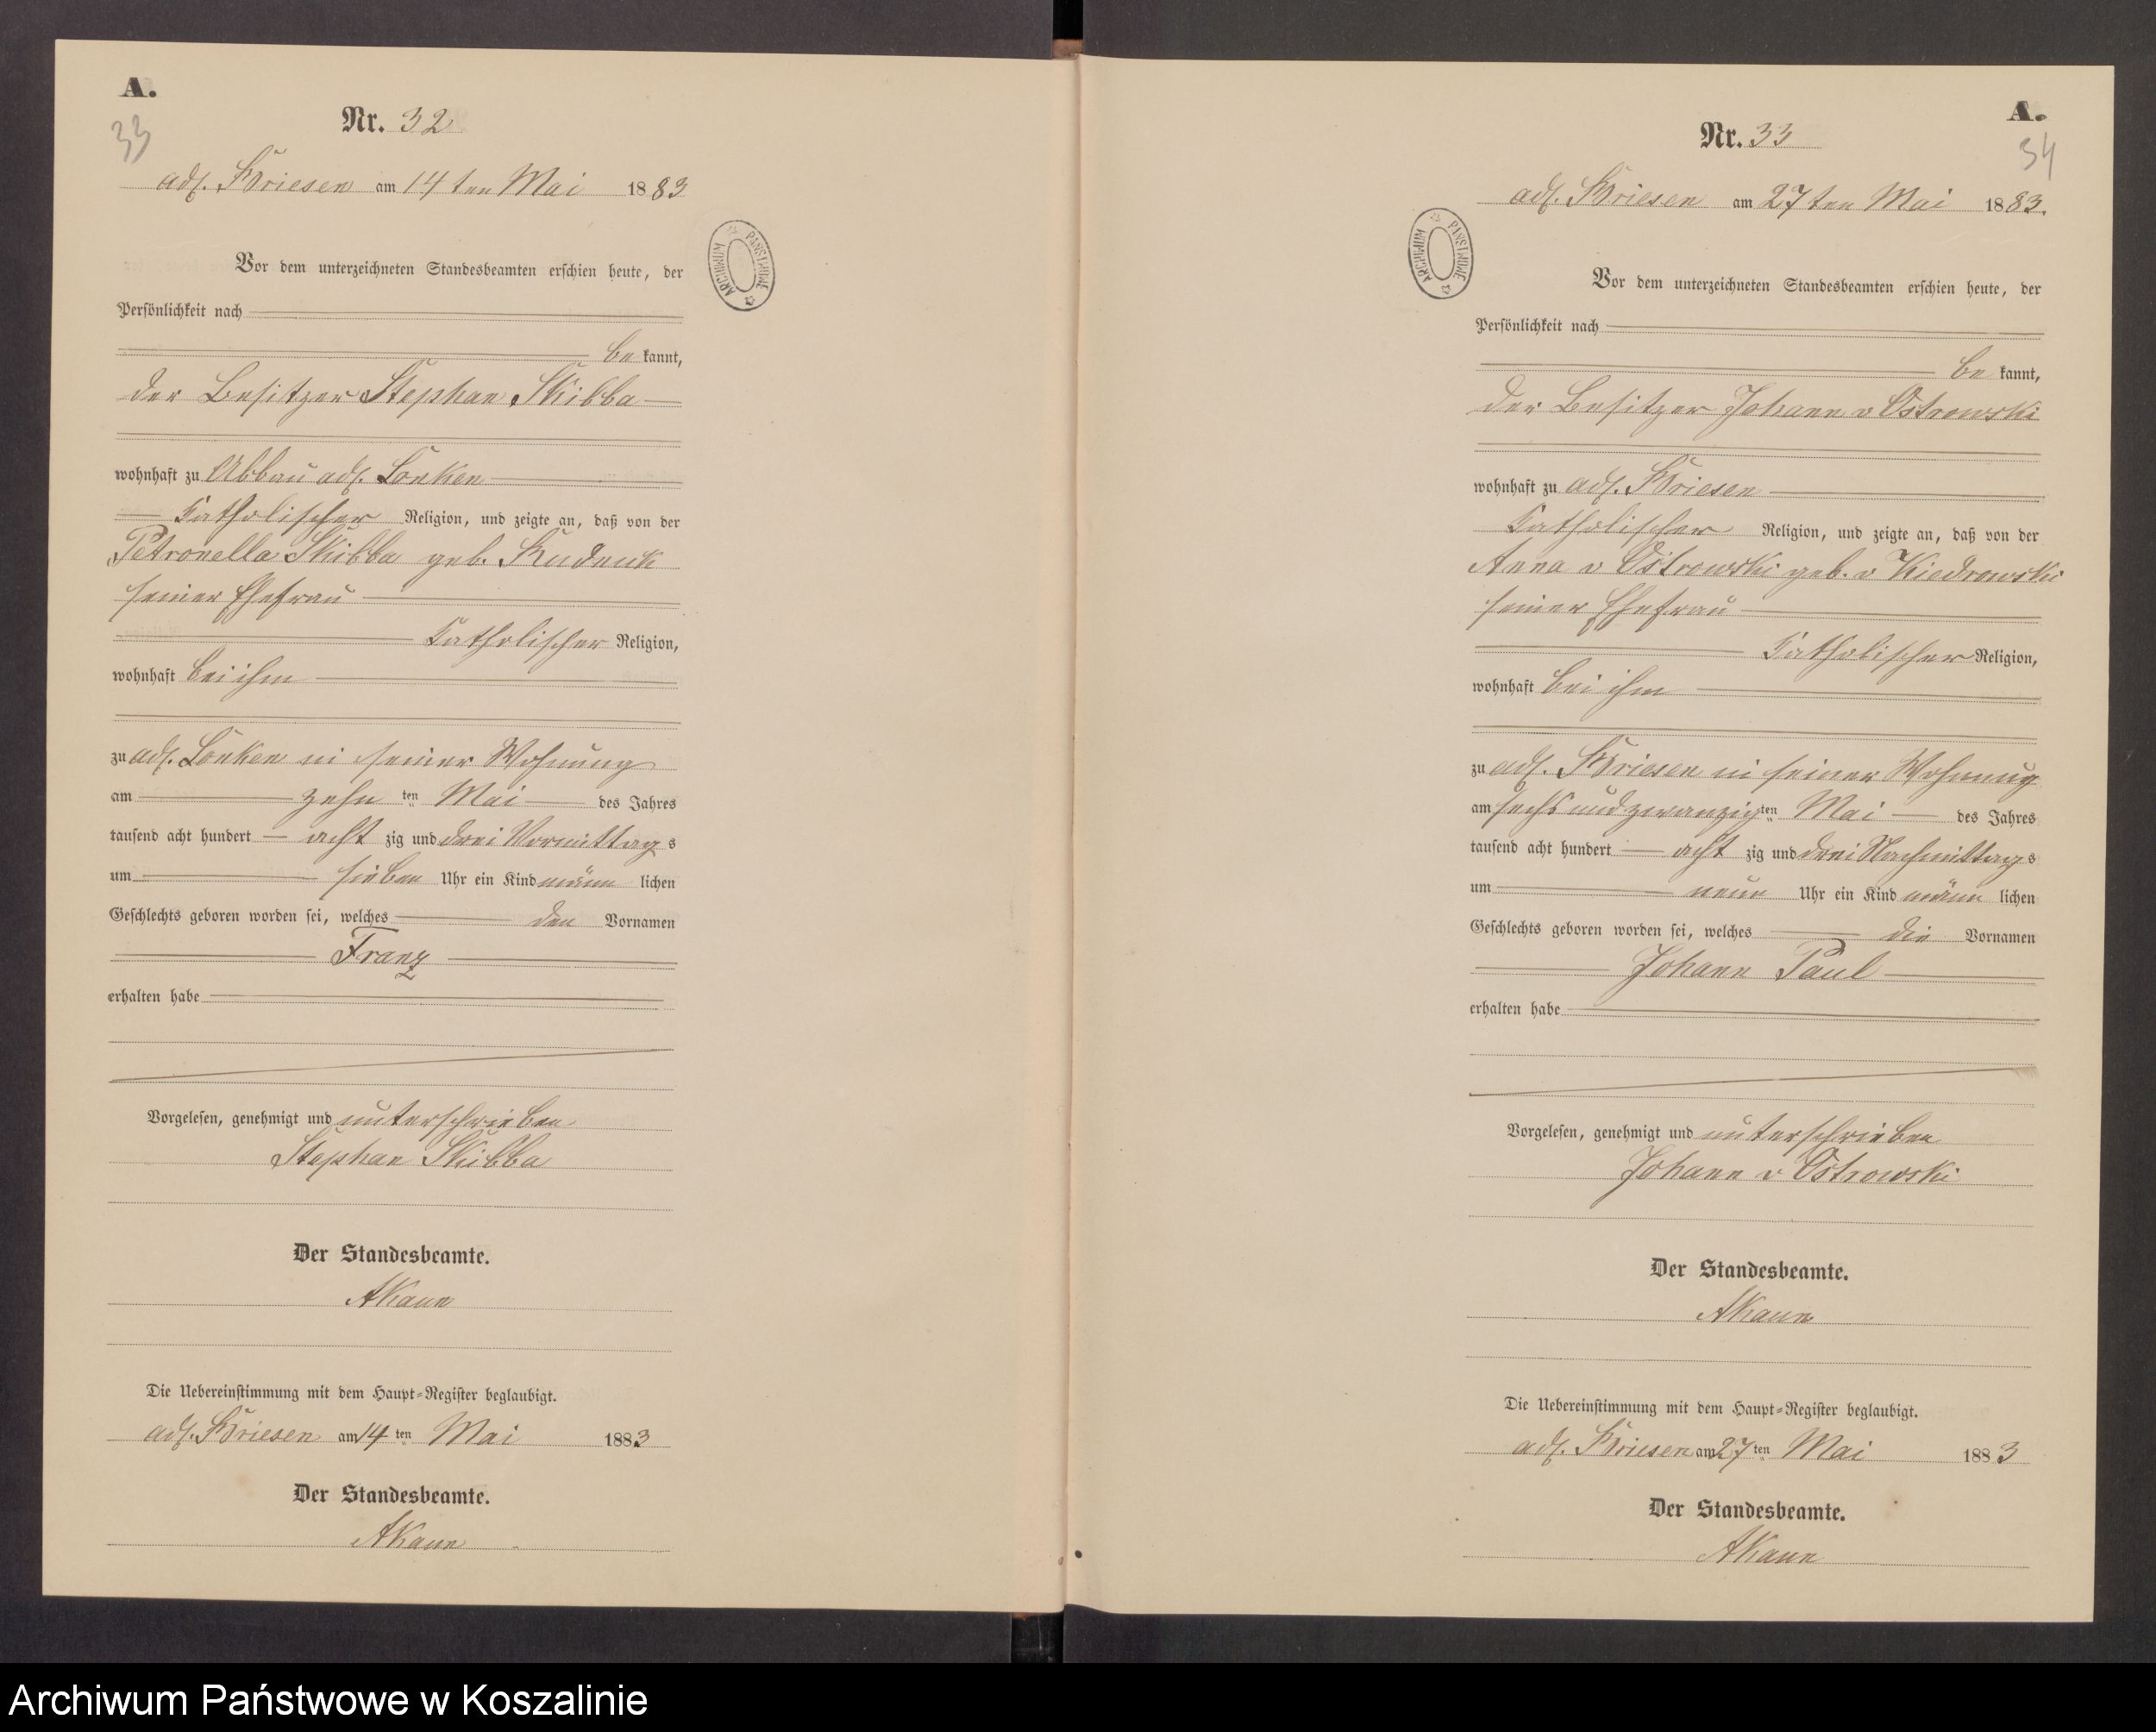 A.
33
Nr. 32
adl. Briesen am 14 ten Mai 1883
ARCHIWUM PAŃSTWOWE
Vor dem unterzeichneten Standesbeamten erschien heute, der
Persönlichkeit nach
be kannt,
der Besitzer Stephan Skibba
wohnhaft zu Abbau adl. Lonken
katholischer Religion, und zeigte an, daß von der
Petronella Skibba geb.
seiner Ehefrau
katholischer Religion,
wohnhaft bei ihm
zu adl. Lonken in seiner Wohnung
am zehn ten Mai des Jahres
tausend acht hundert acht zig und drei Vormittag s
um sieben Uhr ein Kind männ lichen
Geschlechts geboren worden sei, welches den Vornamen
Franz
erhalten habe
Vorgelesen, genehmigt und unterschrieben
Stephan Skibba
Der Standesbeamte.
Die Uebereinstimmung mit dem Haupt-Register beglaubigt.
adl. Briesen am 14 ten Mai 1883
Der Standesbeamte.
A.
34
Nr. 33
adl. Briesen am 27 ten Mai 1883.
ARCHIWUM PAŃSTWOWE
Vor dem unterzeichneten Standesbeamten erschien heute, der
Persönlichkeit nach
be kannt,
der Besitzer Johann v Ostrowski
wohnhaft zu adl. Briesen
katholischer Religion, und zeigte an, daß von der
Anna v Ostrowski geb. v Kiedrowski
seiner Ehefrau
katholischer Religion,
wohnhaft bei ihm
zu adl. Briesen in seiner Wohnung
am sechs und zwanzig ten Mai des Jahres
tausend acht hundert acht zig und drei Nachmittag s
um neun Uhr ein Kind männ lichen
Geschlechts geboren worden sei, welches die Vornamen
Johann Paul
erhalten habe
Vorgelesen, genehmigt und unterschrieben
Johann v Ostrowski
Der Standesbeamte.
Die Uebereinstimmung mit dem Haupt-Register beglaubigt.
adl. Briesen am 27 ten Mai 1883
Der Standesbeamte.
Archiwum Państwowe w Koszalinie